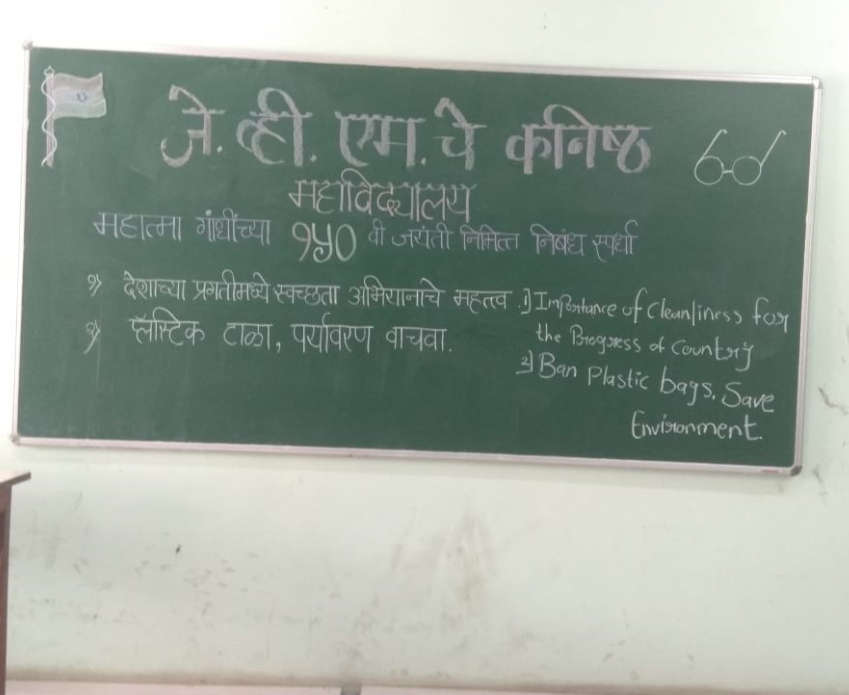 जे. व्ही. एम. चे कनिष्ठ
महाविद्यालय
महात्मा गांधींच्या १५० वी जयंती निमित्त निबंध स्पर्धा
१) देशाच्या प्रगतीमध्ये स्वच्छता अभियानाचे महत्त्व.
२) प्लॅस्टिक टाळा, पर्यावरण वाचवा.
1) Importance of Cleanliness for
the Progress of Country
2) Ban Plastic bags. Save
Environment.